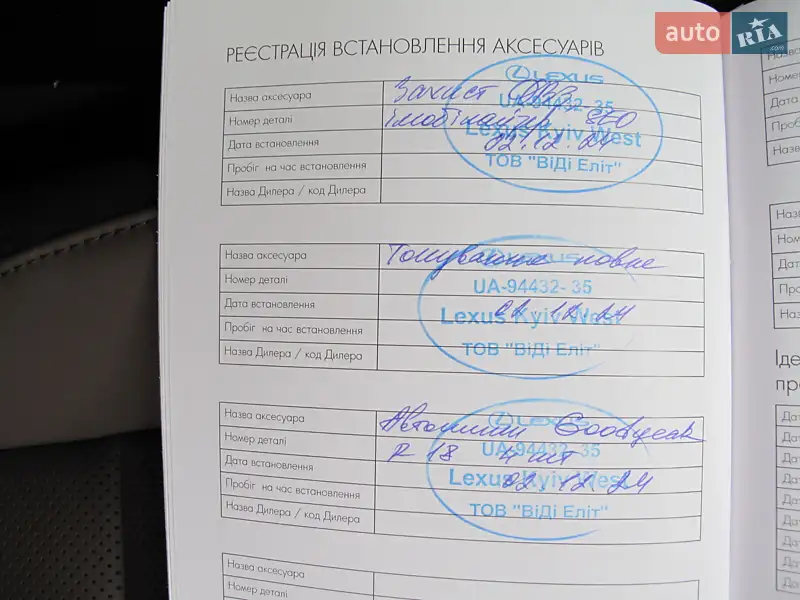 auto RIA .com
РЕЄСТРАЦІЯ ВСТАНОВЛЕННЯ АКСЕСУАРІВ
LEXUS
Назва аксесуара Захист ДВЗ,
UA-94432-35
Номер деталі імобілайзер SEO
Lexus Kyiv West
Дата встановлення 02.12.24
ТОВ "ВіДі Еліт"
Пробіг на час встановлення
Назва Дилера / код Дилера
LEXUS
Назва аксесуара Тонування повне
Номер деталі
UA-94432-35
Дата встановлення 02.12.24
Lexus Kyiv West
Пробіг на час встановлення
ТОВ "ВіДі Еліт"
Назва Дилера / код Дилера
LEXUS
Назва аксесуара Автошини Goodyear
Номер деталі R 18 4 шт
UA-94432-35
Дата встановлення 02.12.24
Lexus Kyiv West
Пробіг на час встановлення
ТОВ "ВіДі Еліт"
Назва Дилера / код Дилера
Назва аксесуара
Номер деталі